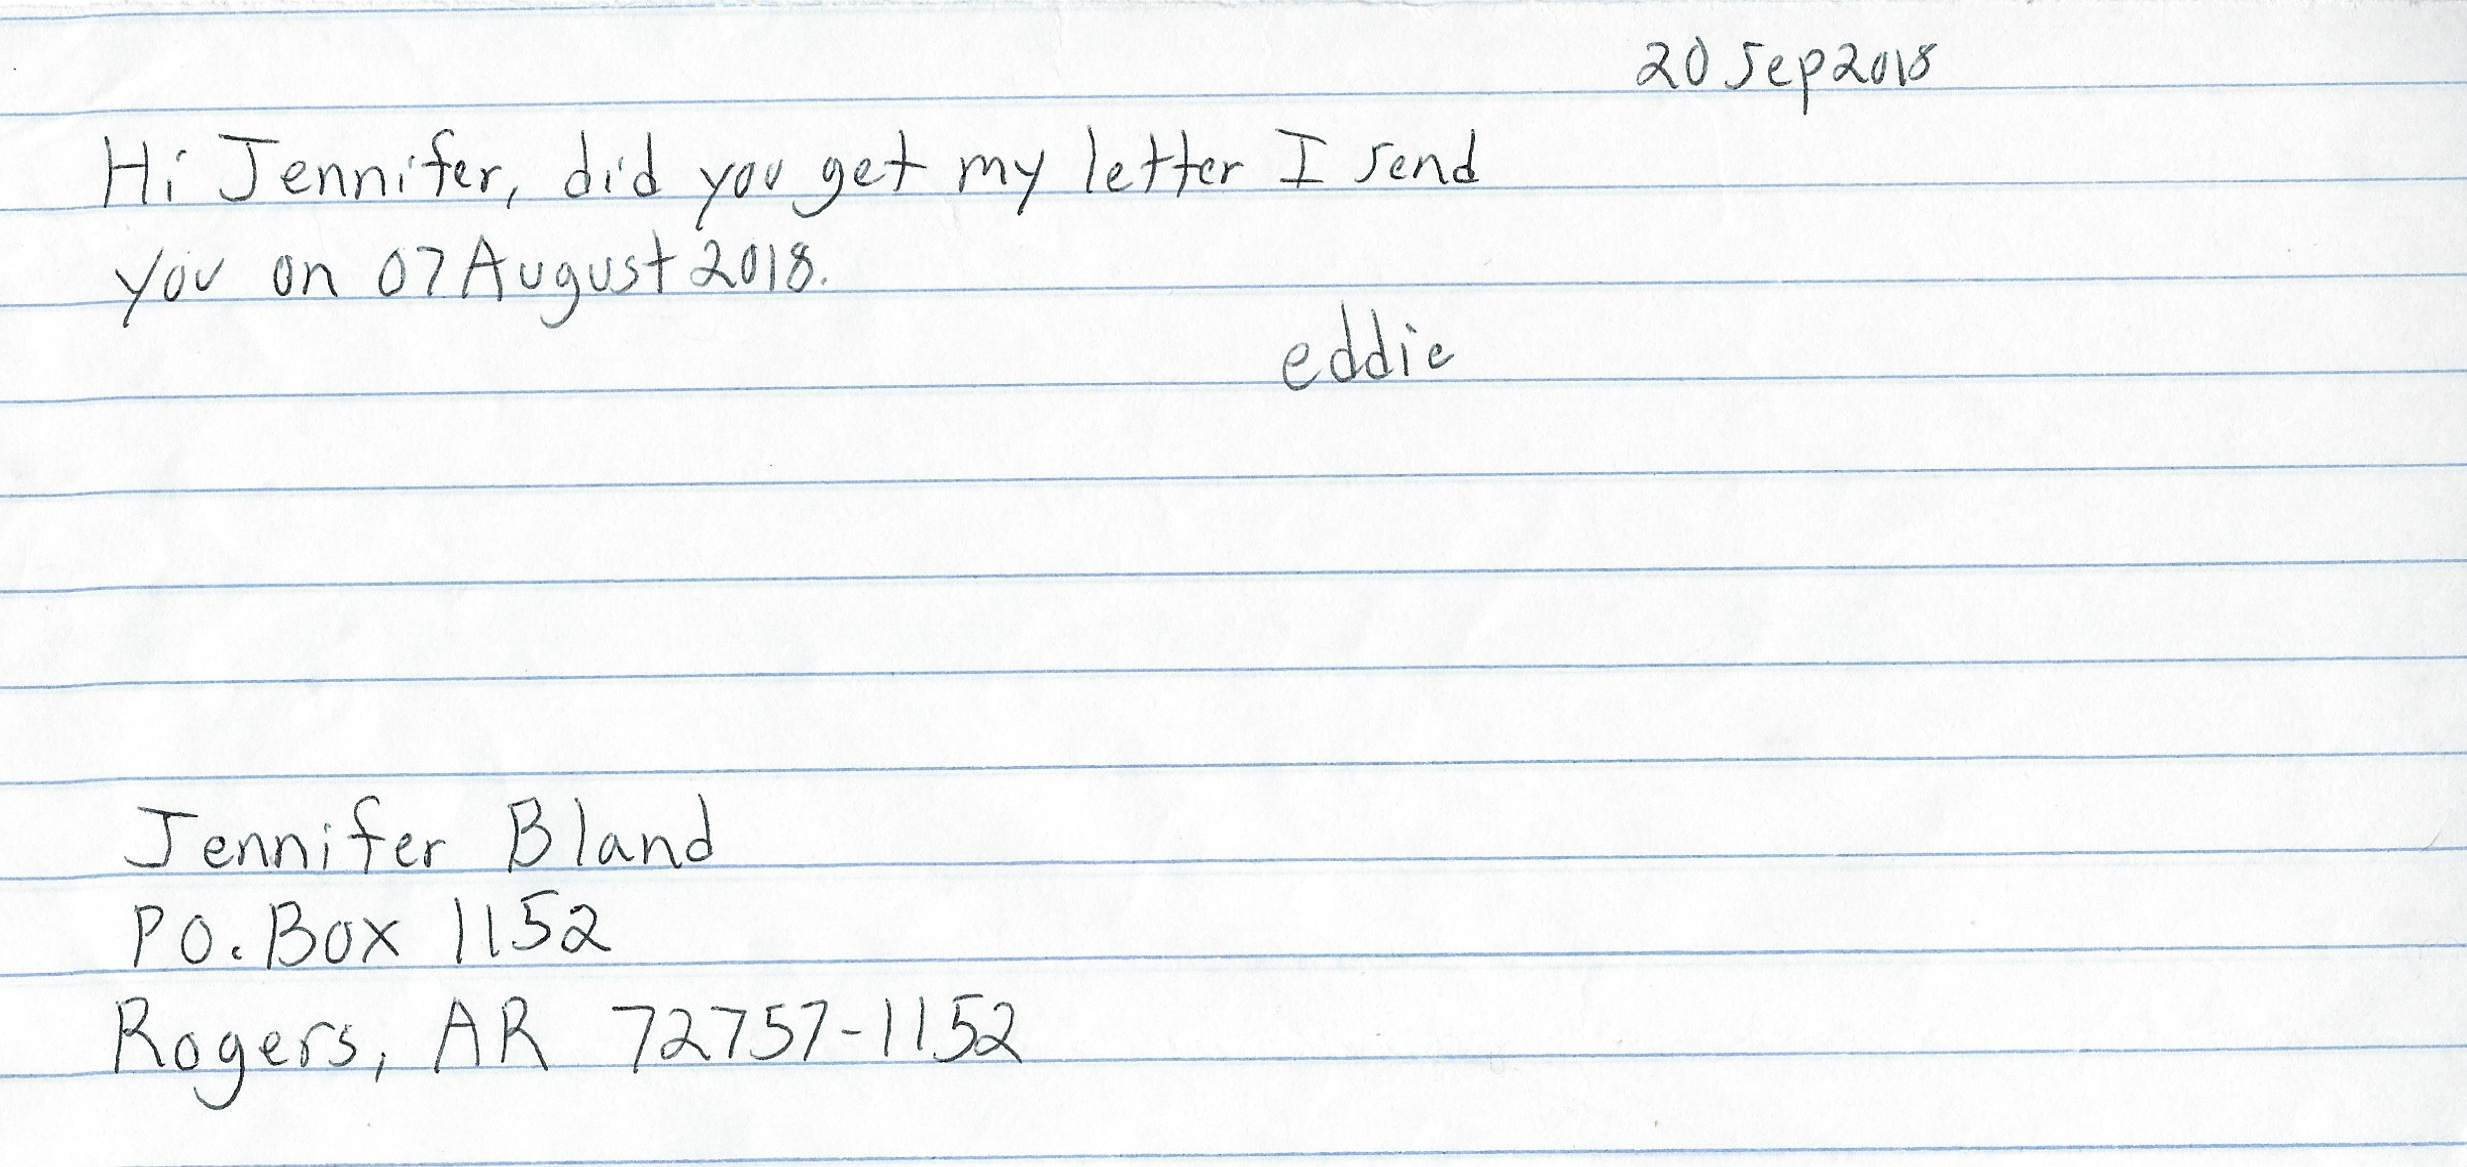 20 Sep 2018
Hi Jennifer, did you get my letter I send
you on 07 August 2018.
eddie
Jennifer Bland
PO. Box 1152
Rogers, AR 72757-1152